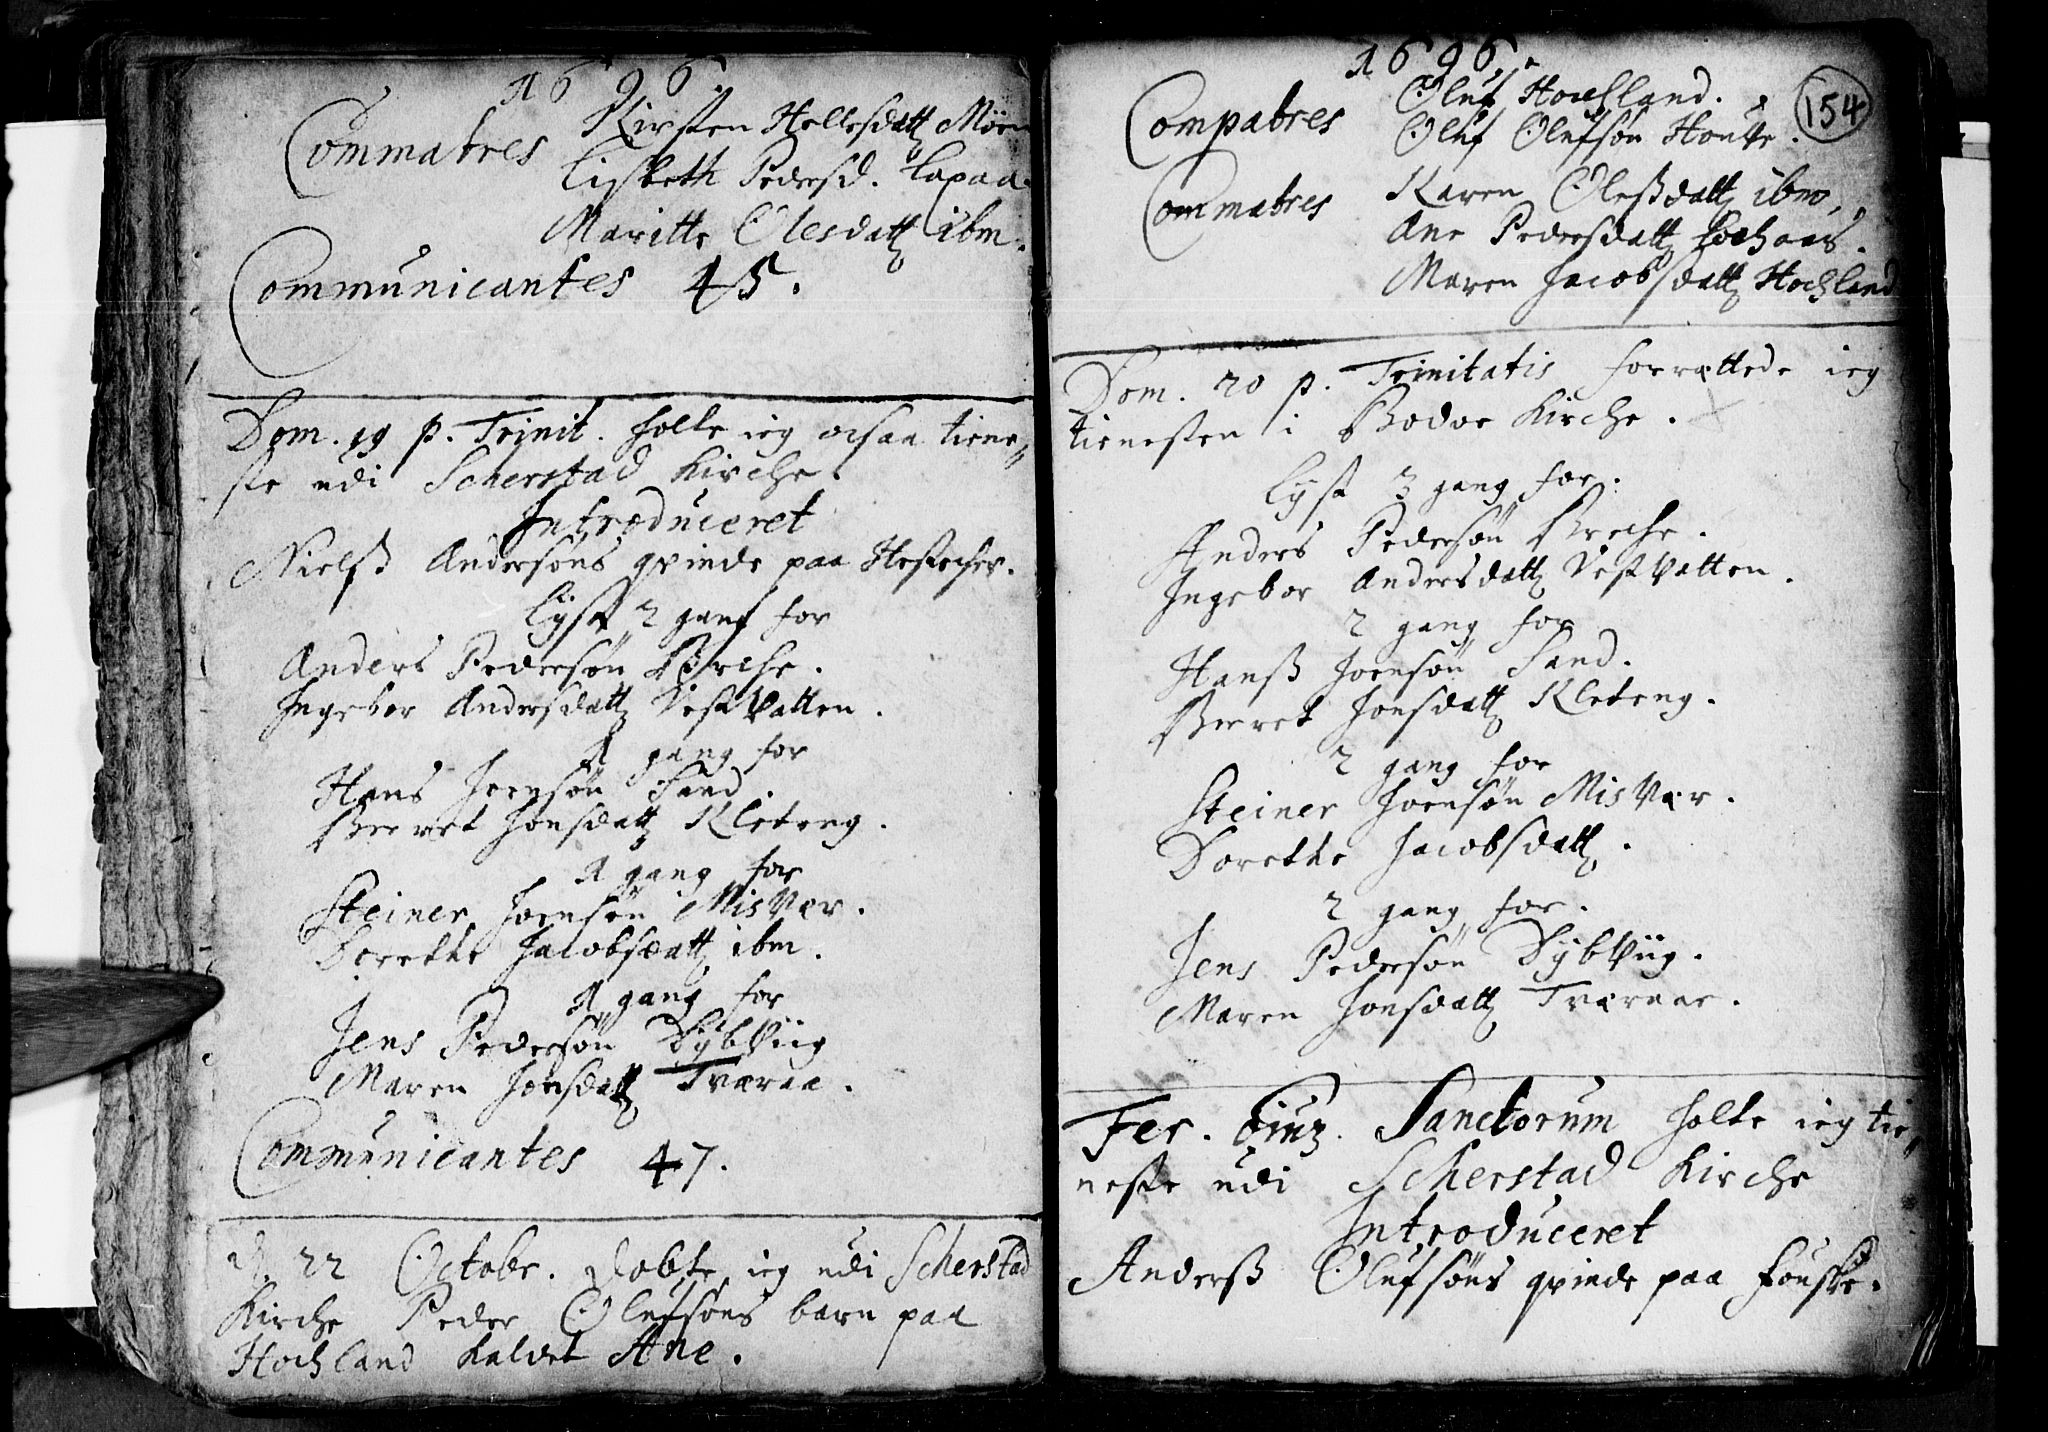 1696.
Commatres Kirsten Hellesdatt Möen
Lisbeth Pedersd. Lapaa
Maritte Olesdatt ibm.
Communicantes 45.
Dom. 19 p. Trinit. holte ieg ocsaa tiene,,
ste udi Scherstad Kirche.
Introduceret
Nielß Andersøns qvinde paa
Lyst 2 gang for
Anders Pedersøn Breche.
Ingebor Andersdatt Vestvatten.
1 gang for
Hans Joensøn Sand.
Beeret Jonsdatt Kleteng.
1 gang for
Steiner Joensøn Misvær.
Dorethe Jacobsdatt ibm.
1 gang for
Jens Pedersøn Dybviig
Maren Jonsdatt Tværaa.
Communicantes 47.
D. 22 Octobr. døbte ieg udi Scherstad
Kirche Peder Olufsøns barn paa
Hochland kaldet Ane.
1696.
154
Compatres Oluf Hochland.
Oluf Olufsøn
Commatres Karen Oleßdatt ibm.
Ane Pedersdatt
Maren Jacobsdatt Hochland
Dom. 20 p. Trinitatis forrættede ieg
tienesten i Bodøe Kirche.
Lyst 3 gang for.
Anders Pedersøn Breche.
Ingebor Andersdatt Vestvatten.
2 gang for
Hanß Joensøn Sand.
Beeret Jonsdatt Kleteng.
2 gang for
Steiner Joensøn Misvær.
Dorethe Jacobsdatt.
2 gang for.
Jens Pedersøn Dybviig.
Maren Jonsdatt Tværaae.
Fer. Sanctorum holte ieg tie,,
neste udi Scherstad Kirche
Introduceret
Anderß Olufsøns qvinde paa Fouske.